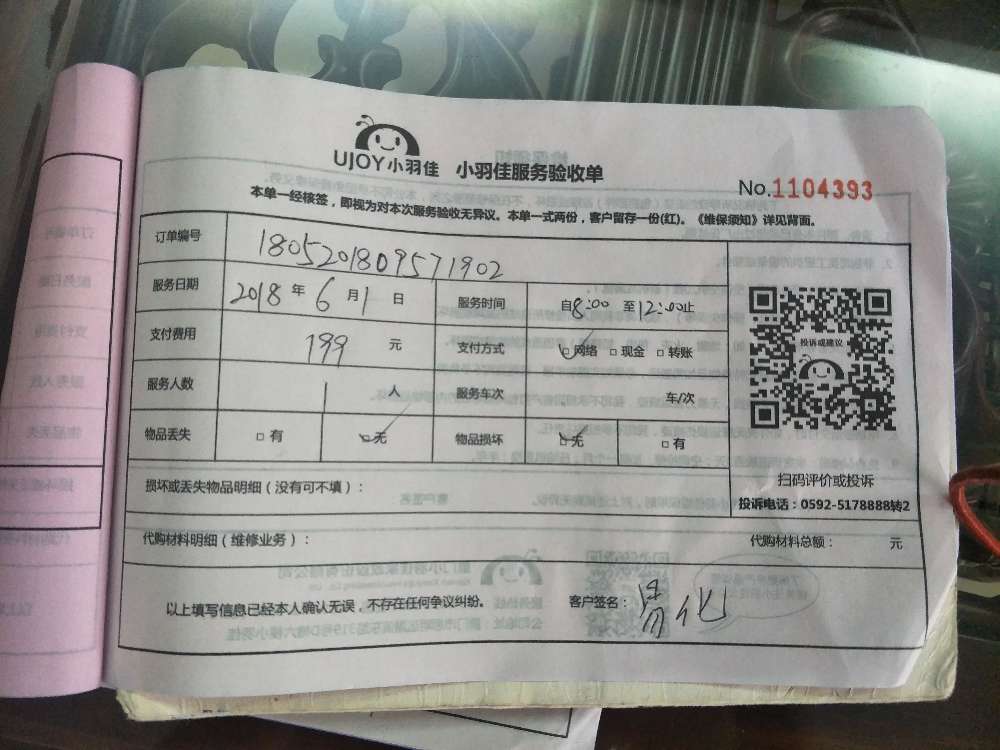 UJOY小羽佳 小羽佳服务验收单
No.1104393
本单一经核签，即视为对本次服务验收无异议。本单一式两份，客户留存一份(红)。《维保须知》详见背面。
订单编号 1805201809571902
服务日期 2018年6月1日 服务时间 自8:00至12:00止
支付费用 199元 支付方式 网络 现金 转账
服务人数 1人 服务车次 车/次
物品丢失 有 无 物品损坏 无 有
投诉或建议
扫码评价或投诉
投诉电话：0592-5178888转2
损坏或丢失物品明细（没有可不填）：
代购材料明细（维修业务）： 代购材料总额： 元
以上填写信息已经本人确认无误，不存在任何争议纠纷。 客户签名：